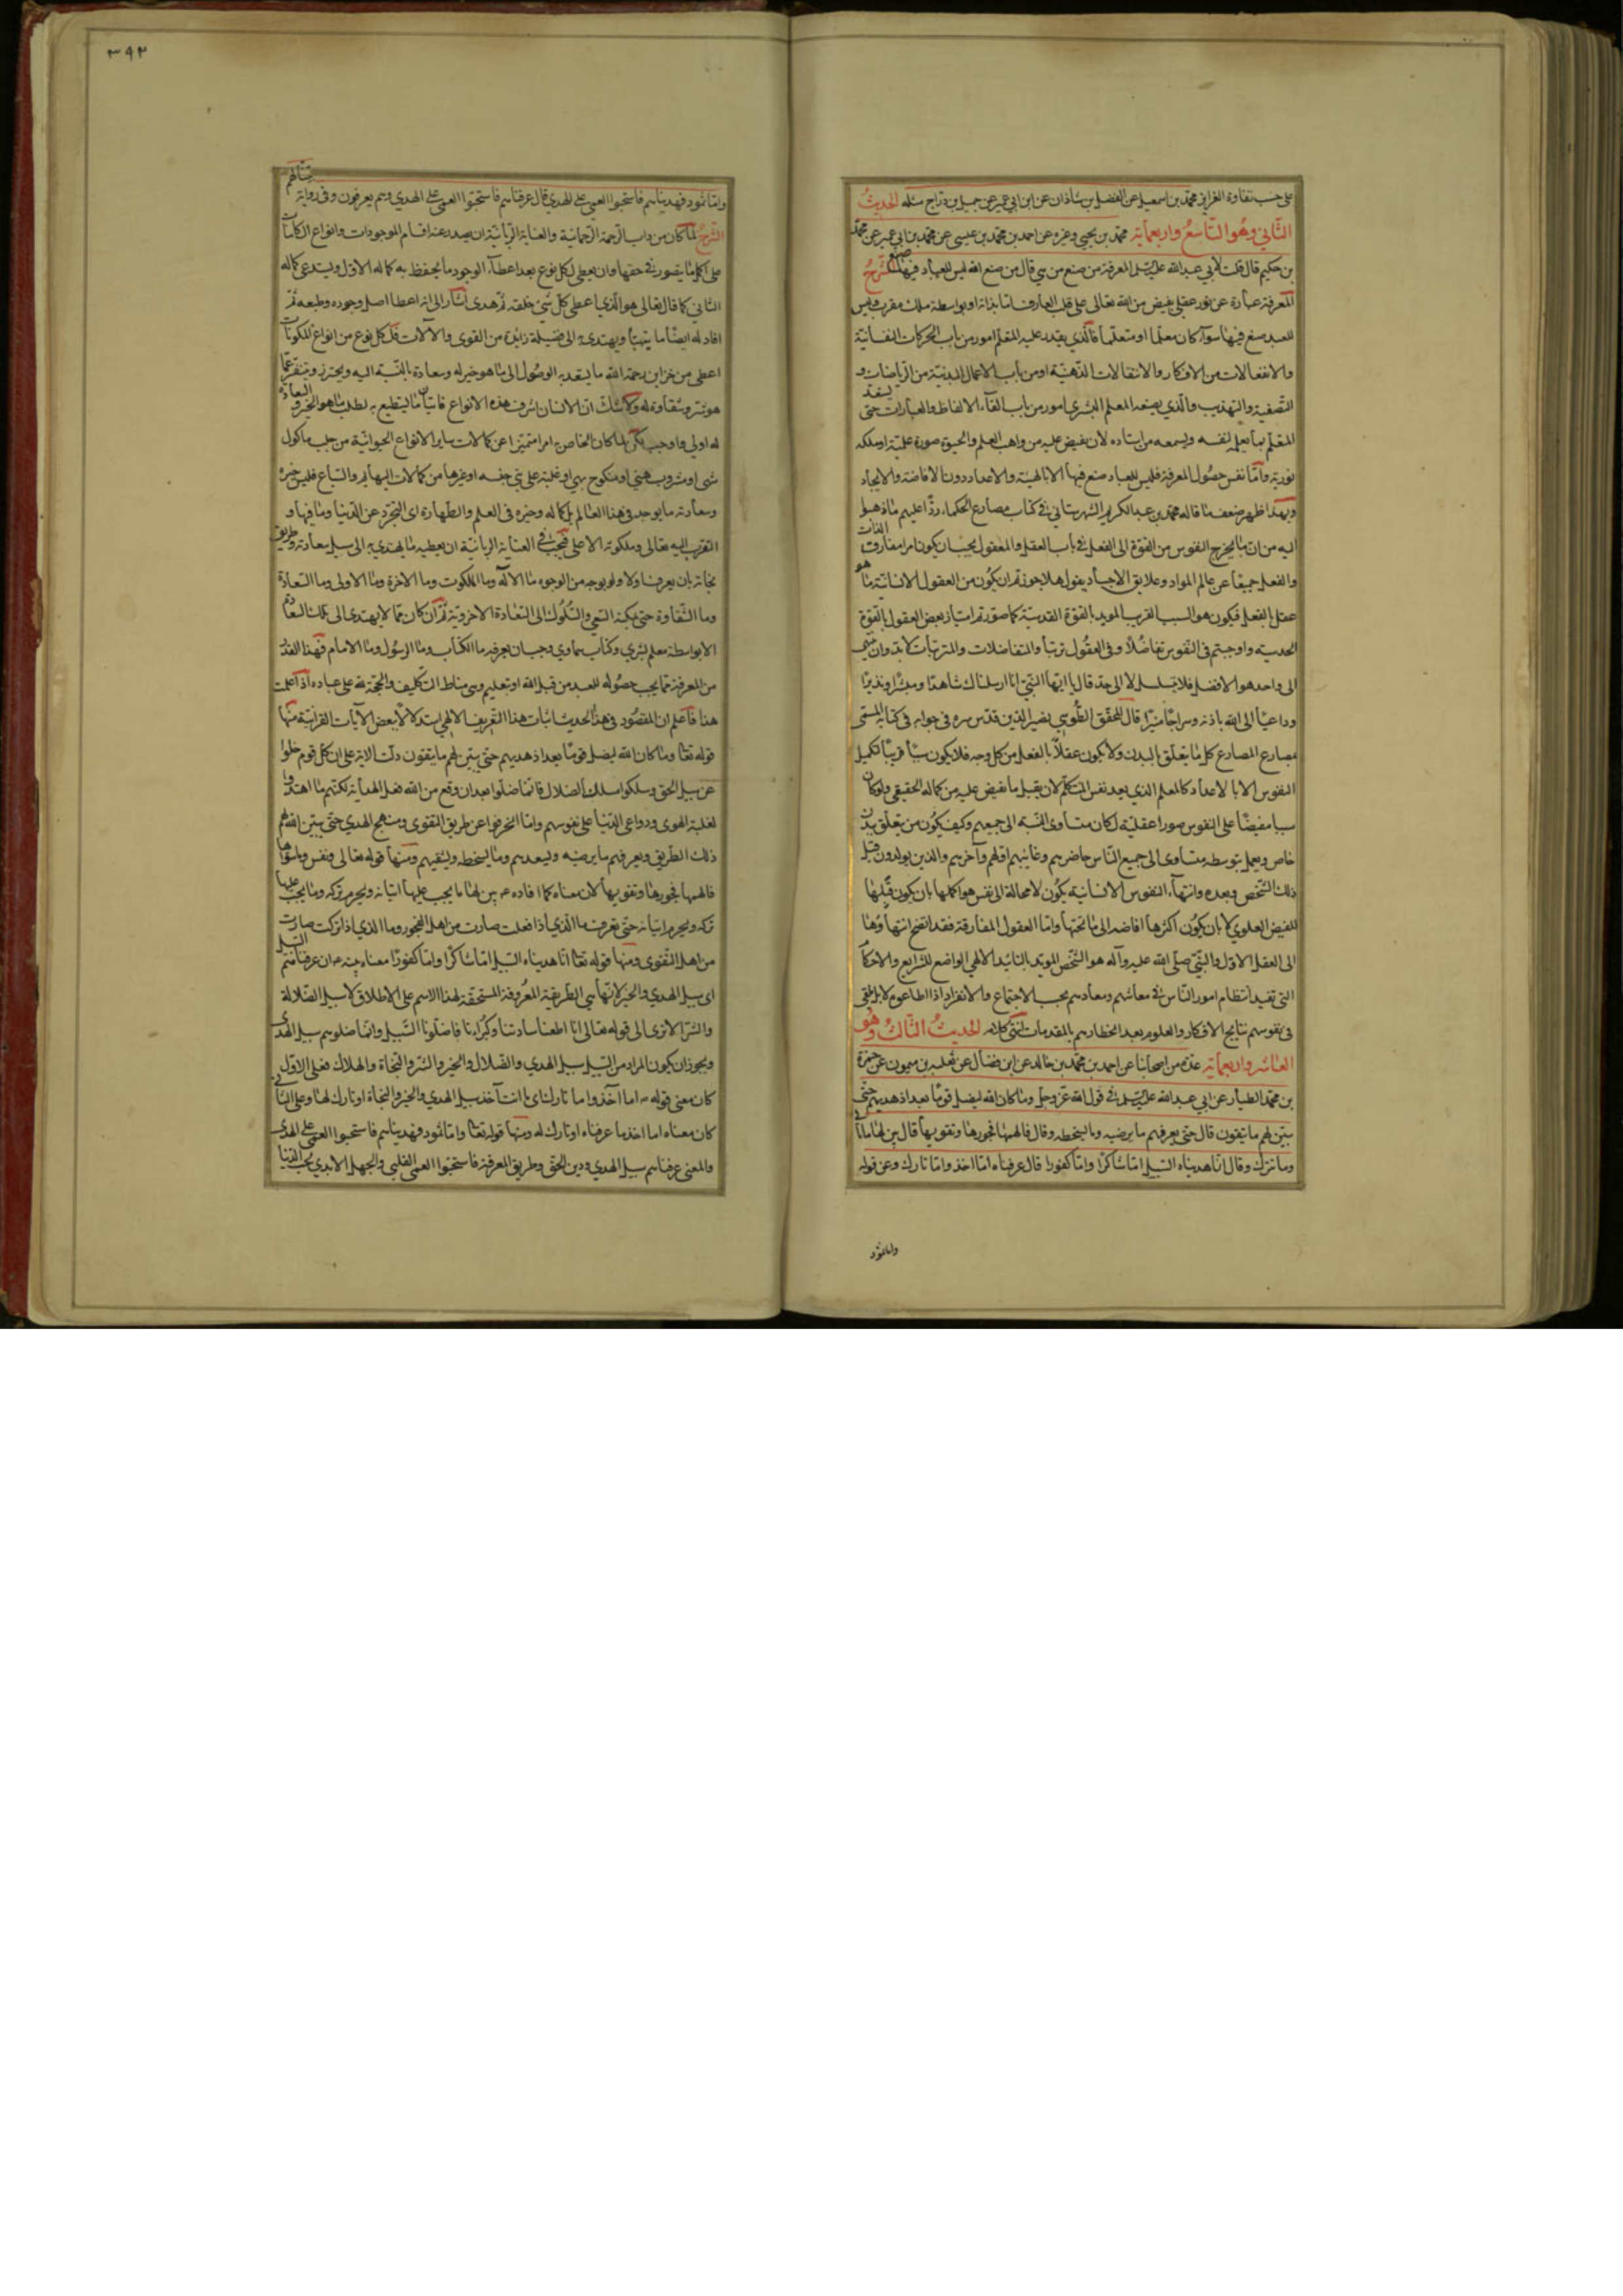 على حسب تفاوة الغرايز محمد بن اسمعيل عن الفضل بن شاذان عن ابن ابي عمير عن جميل بن دراج مثله الحديث
الثاني وهو التاسع واربعمائة محمد بن يحيى وغيره عن احمد بن محمد بن عيسى عن محمد بن ابي عمير عن محمد
بن حكيم قال قلت لابي عبد الله عليه السلم المعرفة من صنع من هي قال من صنع الله ليس للعباد فيها صنع الشرح
المعرفة عبارة عن نور عقلي يفيض من الله تعالى على قلب العارف اما بذاته او بواسطة ملك مقرب وليس
للعبد صنع فيها سواء كان معلما او متعلما فالذي يقدر عليه المتعلم امور من باب الحركات النفسانية
والانفعالات من الافكار والانتقالات الذهنية او من باب الاعمال البدنية من الرياضات و
التصفية والتهذيب والذي يصنعه المعلم البشري امور من باب القاء الالفاظ والعبارات حتى يستعد
المتعلم بما يعمله لنفسه ويسمعه من استاده لان يفيض عليه من واهب العلم والحيوة صورة علمية او ملكة
نورية واما نفس حصول المعرفة فليس للعباد صنع فيها الا بالهيئة والاعداد دون الافاضة والايجاد
وبهذا ظهر ضعف ما قاله محمد بن عبد الكريم الشهرستاني في كتاب مصارع الحكماء ردا عليهم ما ذهبوا
اليه من ان ما يخرج النفوس من القوة الى الفعل في باب العقل والمعقول يجب ان يكون امرا مفارق الذات
والفعل جميعا عن عالم المواد وعلايق الاجساد يقول هلا جوزتم ان يكون من العقول الانسانية ما هو
عقل بالفعل فيكون هو السبب القريب المويد بالقوة القدسية كما صورتم امتياز بعض العقول بالقوة
الحدسية واوجبتم في النفوس تفاضلا وفي العقول ترتبا والمتفاضلات والمترتبات لابد وان ينتهي
الى واحد هو الافضل فلا يتسلسل لا الى حد قال يا ايها النبي انا ارسلناك شاهدا ومبشرا ونذيرا
وداعيا الى الله باذنه وسراجا منيرا قال المحقق الطوسي نصير الدين قدس سره في جوابه في كتابه المسمى
مصارع المصارع كل ما يتعلق بالبدن ولا يكون عقلا بالفعل من كل وجه فلا يكون سببا قريبا لتكميل
النفوس الا بالاعداد كالمعلم الذي يعد نفس المتكلم لان يقبل ما يفيض عليه من كماله الحقيقي ولو كان
سببا مفيضا على النفوس صورا عقلية لكان متساوى النسبة الى جميعهم وكيف يكون من يتعلق ببدن
خاص ويعمل بتوسطه متساوى الى جميع الناس حاضرهم وغائبهم اولهم وآخرهم والذين يولدون قبل
ذلك الشخص وبعده وانتهاء النفوس الانسانية يكون لا محالة الى نفس هو اكملها بان يكون قبلها
للفيض العلوي لا بان يكون اكثرها افاضه الى ما تحتها واما العقول المفارقة فقد اتضح انتهاؤها
الى العقل الاول والنبي صلى الله عليه وآله هو الشخص المويد بالتائيد الالهي الواضع للشرايع والاحكام
التي تفيد انتظام امور الناس في معاشهم ومعادهم بحسب الاجتماع والانفراد اذا اطاعوه لا بل يلقي
في نفوسهم نتايج الافكار والعلوم بعد اخطارهم بالمقدمات انتهى كلامه الحديث الثالث وهو
العاشر واربعمائة عدة من اصحابنا عن احمد بن محمد بن خالد عن ابن فضال عن ثعلبه بن ميمون عن حمزة
بن محمد الطيار عن ابي عبد الله عليه السلم في قول الله عز وجل وما كان الله ليضل قوما بعد اذ هديهم حتى
يبين لهم ما يتقون قال حتى يعرفهم ما يرضيه وما يسخطه وقال فالهمها فجورها وتقويها قال بين لها ما تأتى
وما تترك وقال انا هديناه السبيل اما شاكرا واما كفورا قال عرفناه اما اخذ واما تارك وعن قوله
واما ثمود
٣٩٢
واما ثمود فهديناهم فاستحبوا العمى على الهدى قال عرفناهم فاستحبوا العمى على الهدى وهم يعرفون وفي رواية بينا لهم
الشرح لما كان من داب الرحمة الرحمانية والعناية الربانية ان يصدر عنه اقسام الموجودات وانواع الكاينات
على اكمل ما يتصور في حقها وان يعطى لكل نوع بعد اعطاء الوجود ما يحفظ به كماله الاول ويستدعى كماله
الثاني كما قال تعالى هو الذي اعطى كل شيء خلقه ثم هدى اشار الى انه اعطا اصل وجوده وطبعه ثم
افاد له ايضا ما يتهيا ويهتدى به الى فضيلة زايدة من القوى والآلات فلكل نوع من انواع المكونات
اعطى من خزاين رحمة الله ما يسعد به الوصول الى ما هو خير له وسعادة بالنسبة اليه ويحترز ويتنفر عما
هو شر وشقاوة له ولا شك ان الانسان اشرف هذه الانواع فاتيان ما يستطيع به لطلب ما هو الخير والسعادة
له اولى واوجب لكن لما كان الخاص به امرا متميزا عن كمالات ساير الانواع الحيوانية من جلب ماكول
شهى او مشروب هنيء او منكوح بهى او غلبة على بني جنسه او غيرها من كمالات البهايم والسباع فليس خيره
وسعادته ما يوجد في هذا العالم بل كماله وخيره في العلم والطهارة اى التجرد عن الدنيا وما فيها و
التقرب اليه تعالى وملكوته الاعلى فيجب في العناية الربانية ان يعطيه ما يهتدى به الى سبيل سعادته وطريق
نجاته بان يعرف اولا ولو بوجه من الوجوه ما الاله وما الملكوت وما الاخرة وما الاولى وما السعادة
وما الشقاوة حتى يمكنه السعى والسلوك الى السعادة الاخروية ثم ان كان مما لا يهتدى الى تلك السعادة
الا بواسطة معلم بشرى وكتاب سماوى وجب ان يعرفه ما الكتاب وما الرسول وما الامام فهذا القدر
من المعرفة مما يجب حصوله للعبد من قبل الله او بتعليم وهى مناط التكليف والحجة لله على عباده اذا علمت
هذا فاعلم ان المقصود في هذا الحديث اثبات هذا التعريف الالهي استدلالا ببعض الآيات القرآنية منها
قوله تعا وما كان الله ليضل قوما بعد اذ هديهم حتى يبين لهم ما يتقون دلت الاية على ان كل قوم ضلوا
عن سبيل الحق وسلكوا مسلك الضلال فانما ضلوا بعد ان وقع من الله فعل الهداية لكنهم ما اهتدوا
لغلبة الهوى ودواعى الدنيا على نفوسهم وانما انحرفوا عن طريق التقوى ومنهج الهدى حتى يبين الله لهم
ذلك الطريق ويعرفهم ما يرضيه ويسعدهم وما يسخطه ويشقيهم ومنها قوله تعالى ونفس وما سواها
فالهمها فجورها وتقويها لان معناه كما افاده ع بين لها ما يجب عليها اتيانه ويحرم تركه وما يجب عليها
تركه ويحرم اتيانه حتى تعرف ما الذي اذا فعلت صارت من اهل الفجور وما الذي اذا تركت صارت
من اهل التقوى ومنها قوله تعا انا هديناه السبيل اما شاكرا واما كفورا معناه
اى سبيل الهدى والخير لانها هى الطريقة المعروفة المستحقة لهذا الاسم على الاطلاق لا سبيل الضلالة
والشر الا ترى الى قوله تعالى انا اطعنا سادتنا وكبراءنا فاضلونا السبيل وانما ضلوهم سبيل الهدى
ويجوز ان يكون المراد من السبيل سبيل الهدى والضلال والخير والشر والنجاة والهلاك فعلى الاول
كان معنى قوله ع اما آخذ واما تارك اى ما انت آخذ سبيل الهدى والخير والنجاة او تارك لها وعلى الثاني
كان معناه اما اخذ ما عرفناه او تارك له ومنها قوله تعا واما ثمود فهديناهم فاستحبوا العمى على الهدى
والمعنى عرفناهم سبيل الهدى ودين الحق وطريق المعرفة فاستحبوا العمى القلبى والجهل الابدى بحب الدنيا